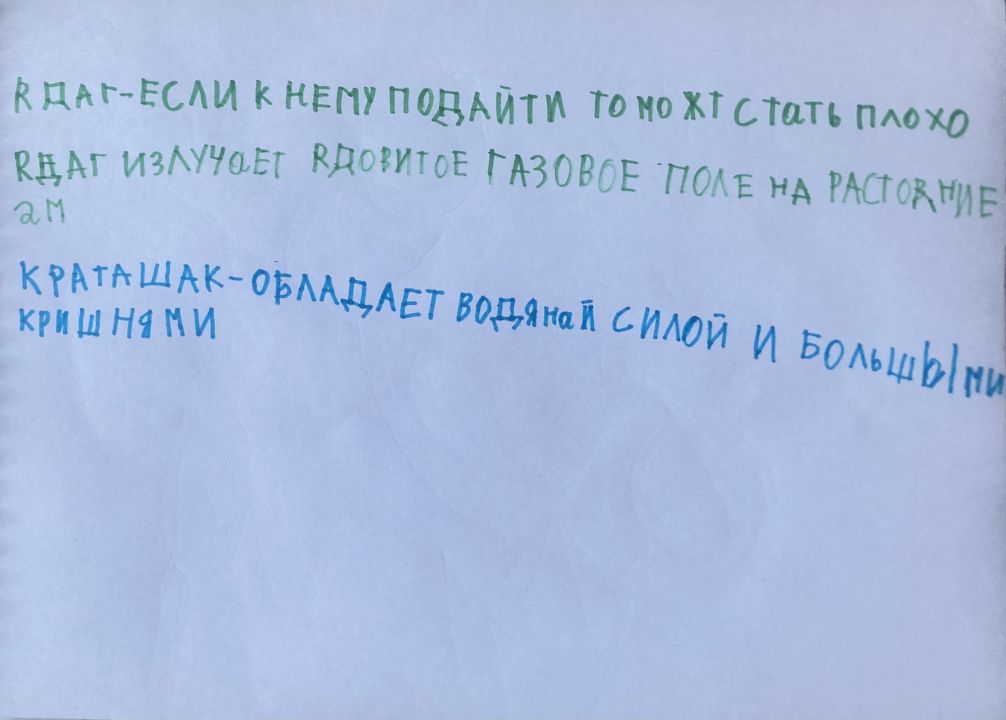 ЯДАГ-ЕСЛИ К НЕМУ ПОДАЙТИ ТО МОЖТ СТАТЬ ПЛОХО
ЯДАГ ИЗЛУЧАЕТ ЯДОВИТОЕ ГАЗОВОЕ ПОЛЕ НА РАСТОЯНИЕ
2М
КРАТАШАК-ОБЛАДАЕТ ВОДЯНАЙ СИЛОЙ И БОЛЬШЫМИ
КРИШНЯМИ